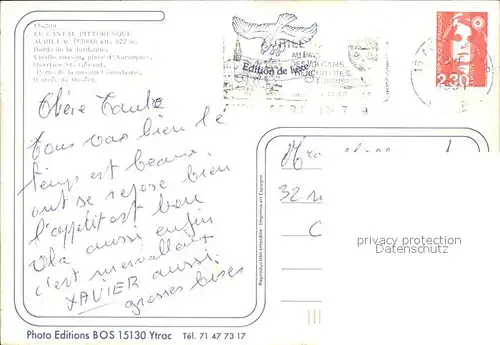 LE CANTAL PITTORESQUE
AURILLAC (15000) alt. 622 m.
Bords de la Jordanne
Vieille maison, place d'Aurinques
Quartier St-Géraud
Porte de la maison Consulaire
Edition de luxe
2,20
Chère Tante
Tous vas bien le
temps est beaux
ont se repose bien
l'appétit est bon
Ola aussi enfin
c'est merveilleux
XAVIER aussi.
grosses bises
Reproduction interdite - Imprimé en Espagne
32
privacy protection
Datenschutz
Photo Editions BOS 15130 Ytrac Tél. 71 47 73 17